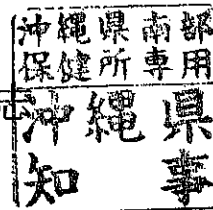 沖縄県南部
保健所専用
沖縄県
知事